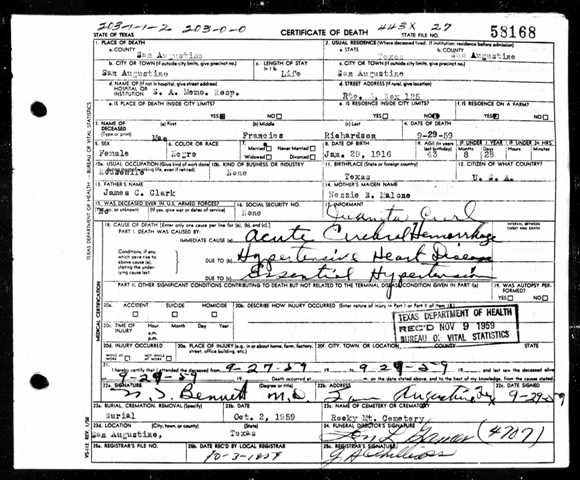 203-1-1-2 203-0-0 443X 27
STATE OF TEXAS CERTIFICATE OF DEATH STATE FILE NO. 58168
1. PLACE OF DEATH 2. USUAL RESIDENCE (Where deceased lived. If institution: residence before admission)
a. COUNTY San Augustine a. STATE Texas b. COUNTY San Augustine
b. CITY OR TOWN (If outside city limits, give precinct no.) c. LENGTH OF STAY c. CITY OR TOWN (If outside city limits, give precinct no.)
San Augustine Life San Augustine
d. NAME OF (If not in hospital, give street address) HOSPITAL OR INSTITUTION S. A. Memo. Hosp. d. STREET ADDRESS (If rural, give location)
Box 125
e. IS PLACE OF DEATH INSIDE CITY LIMITS? e. IS RESIDENCE INSIDE CITY LIMITS? f. IS RESIDENCE ON A FARM?
YES NO YES NO YES NO
3. NAME OF DECEASED (Type or print) (a) First (b) Middle (c) Last 4. DATE OF DEATH
Mae Francies Richardson 9-29-59
5. SEX 6. COLOR OR RACE 7. Married Never Married Widowed Divorced 8. DATE OF BIRTH 9. AGE (In years last birthday) IF UNDER 1 YEAR IF UNDER 24 HRS.
Female Negro Jan. 29, 1916 43 8
10a. USUAL OCCUPATION (Give kind of work done 10b. KIND OF BUSINESS OR INDUSTRY 11. BIRTHPLACE (State or foreign country) 12. CITIZEN OF WHAT COUNTRY?
Housewife None Texas U. S. A.
13. FATHER'S NAME 14. MOTHER'S MAIDEN NAME
James C. Clark Malone
15. WAS DECEASED EVER IN U.S. ARMED FORCES? 16. SOCIAL SECURITY NO. 17. INFORMANT
No None Juanita
18. CAUSE OF DEATH [Enter only one cause per line for (a), (b), and (c).]
PART I. DEATH WAS CAUSED BY:
IMMEDIATE CAUSE (a) Acute Cerebral Hemorrhage
Conditions, if any, which gave rise to above cause (a), stating the underlying cause last.
DUE TO (b) Hypertensive Heart Disease
DUE TO (c) Essential Hypertension
PART II. OTHER SIGNIFICANT CONDITIONS CONTRIBUTING TO DEATH BUT NOT RELATED TO THE TERMINAL DISEASE CONDITION GIVEN IN PART I (a) 19. WAS AUTOPSY PERFORMED?
YES NO
20a. ACCIDENT SUICIDE HOMICIDE 20b. DESCRIBE HOW INJURY OCCURRED. (Enter nature of injury in Part I or Part II of item 18.)
TEXAS DEPARTMENT OF HEALTH
REC'D NOV 9 1959
BUREAU OF VITAL STATISTICS
20c. TIME OF INJURY Hour Month Day Year
a.m.
p.m.
20d. INJURY OCCURRED 20e. PLACE OF INJURY (e.g., in or about home, farm, factory, street, office building, etc.)
WHILE AT WORK NOT WHILE AT WORK
9-27-59 9-29-59
9-29-59 Death occurred at
22a. SIGNATURE (Degree or title) 22b. ADDRESS 22c. DATE SIGNED
Bennett M.D. San Augustine, Tex 9-29-59
23a. BURIAL, CREMATION, REMOVAL (Specify) 23b. DATE 23c. NAME OF CEMETERY OR CREMATORY
Burial Oct. 2, 1959 Rocky Mt. Cemetery
23d. LOCATION (City, town, or county) (State) 24. FUNERAL DIRECTOR'S SIGNATURE
San Augustine, Texas (4707)
25a. REGISTRAR'S FILE NO. 25b. DATE REC'D BY LOCAL REGISTRAR 25c. REGISTRAR'S SIGNATURE
10-3-1959
TEXAS DEPARTMENT OF HEALTH — BUREAU OF VITAL STATISTICS
MEDICAL CERTIFICATION